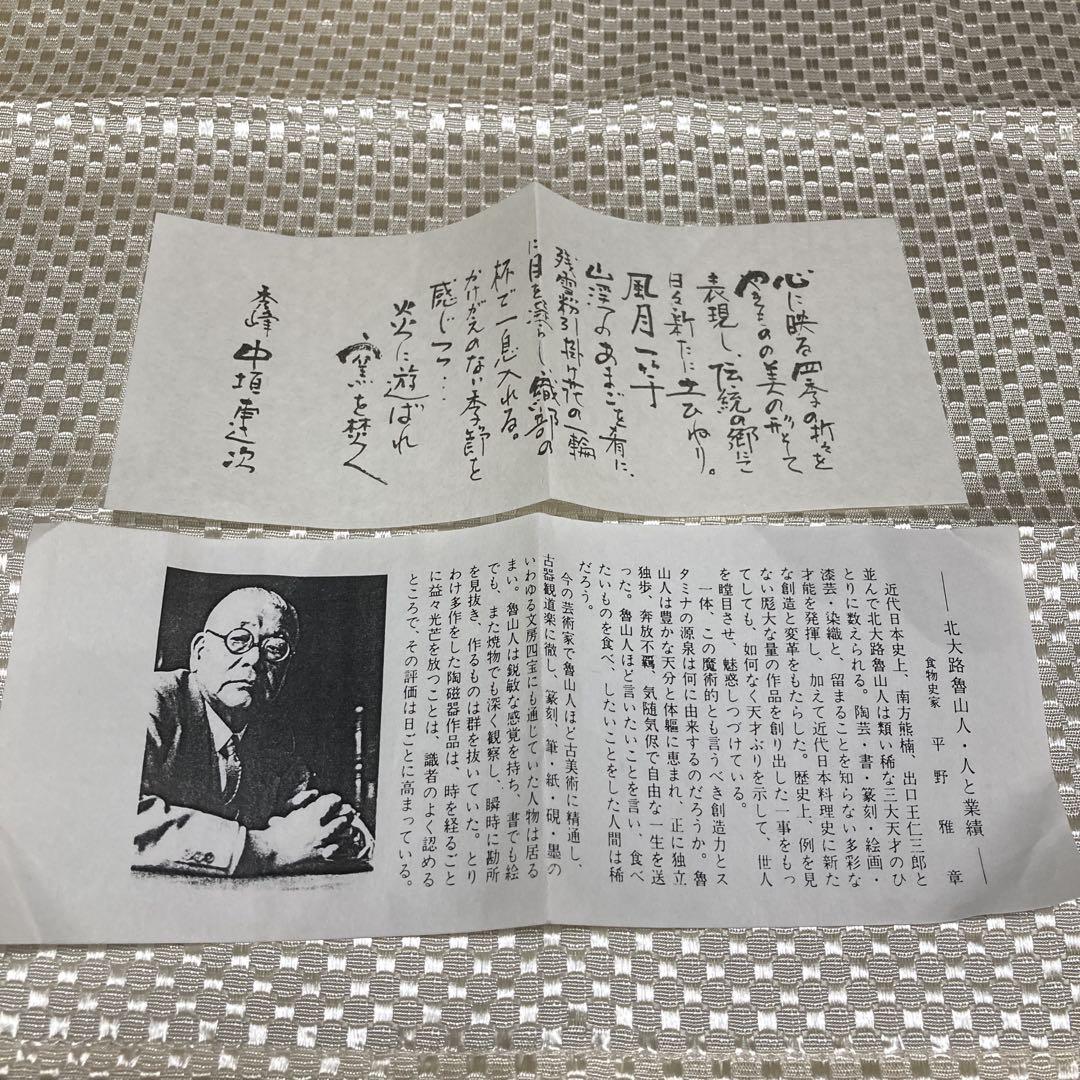 心に映る四季の折々を
やきものの美の形そて
表現し、伝統の郷にて
日々新たに土ひねり。
風月一竿
山渓のあまごを肴に、
残雪粉引掛け花の一輪
に目を凝らし、織部の
杯で一息入れる。
かけがえのない季節を
感じつつ・・
炎に遊ばれ
窯を焚く
秀峰 中垣連次
── 北大路魯山人・人と業績 ──
食物史家 平野雅章
近代日本史上、南方熊楠、出口王仁三郎と
並んで北大路魯山人は類い稀な三大天才のひ
とりに数えられる。陶芸・書・篆刻・絵画・
漆芸・染織と、留まることを知らない多彩な
才能を発揮し、加えて近代日本料理史に新た
な創造と変革をもたらした。歴史上、例を見
ない厖大な量の作品を創り出した一事をもっ
てしても、如何なく天才ぶりを示して、世人
を瞠目させ、魅惑しつづけている。
一体、この魔術的とも言うべき創造力とス
タミナの源泉は何に由来するのだろうか。魯
山人は豊かな天分と体軀に恵まれ、正に独立
独歩、奔放不羈、気随気侭で自由な一生を送
った。魯山人ほど言いたいことを言い、食べ
たいものを食べ、したいことをした人間は稀
だろう。
今の芸術家で魯山人ほど古美術に精通し、
古器観道楽に徹し、篆刻、筆・紙・硯・墨の
いわゆる文房四宝にも通じていた人物は居る
まい。魯山人は鋭敏な感覚を持ち、書でも絵
でも、また焼物でも深く観察し、瞬時に勘所
を見抜き、作るものは群を抜いていた。とり
わけ多作をした陶磁器作品は、時を経るごと
に益々光芒を放つことは、識者のよく認める
ところで、その評価は日ごとに高まっている。